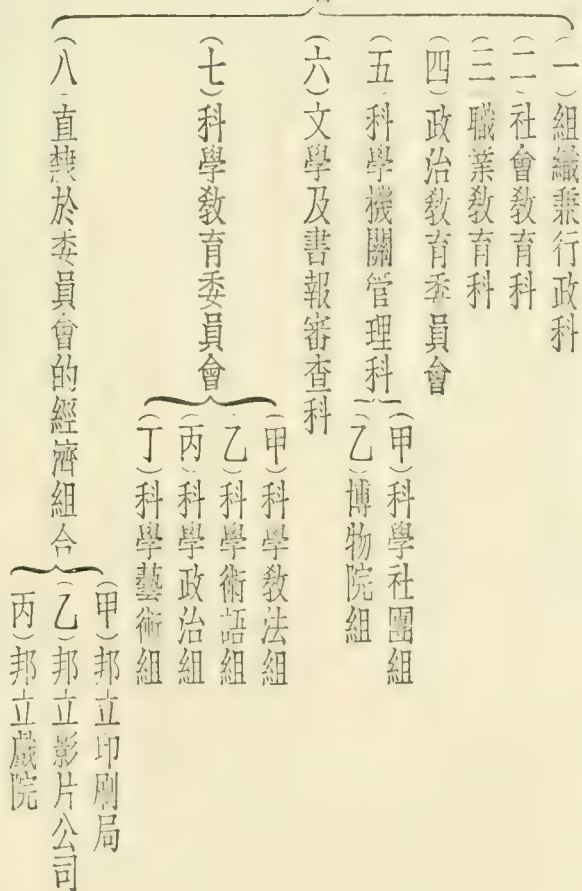 (一)組織兼行政科
(二)社會教育科
(三)職業教育科
(四)政治教育委員會
(五)科學機關管理科
(甲)科學社團組
(乙)博物院組
(六)文學及書報審查科
(七)科學教育委員會
(甲)科學教法組
(乙)科學術語組
(丙)科學政治組
(丁)科學藝術組
(八)直隸於委員會的經濟組合
(甲)邦立印刷局
(乙)邦立影片公司
(丙)邦立戲院